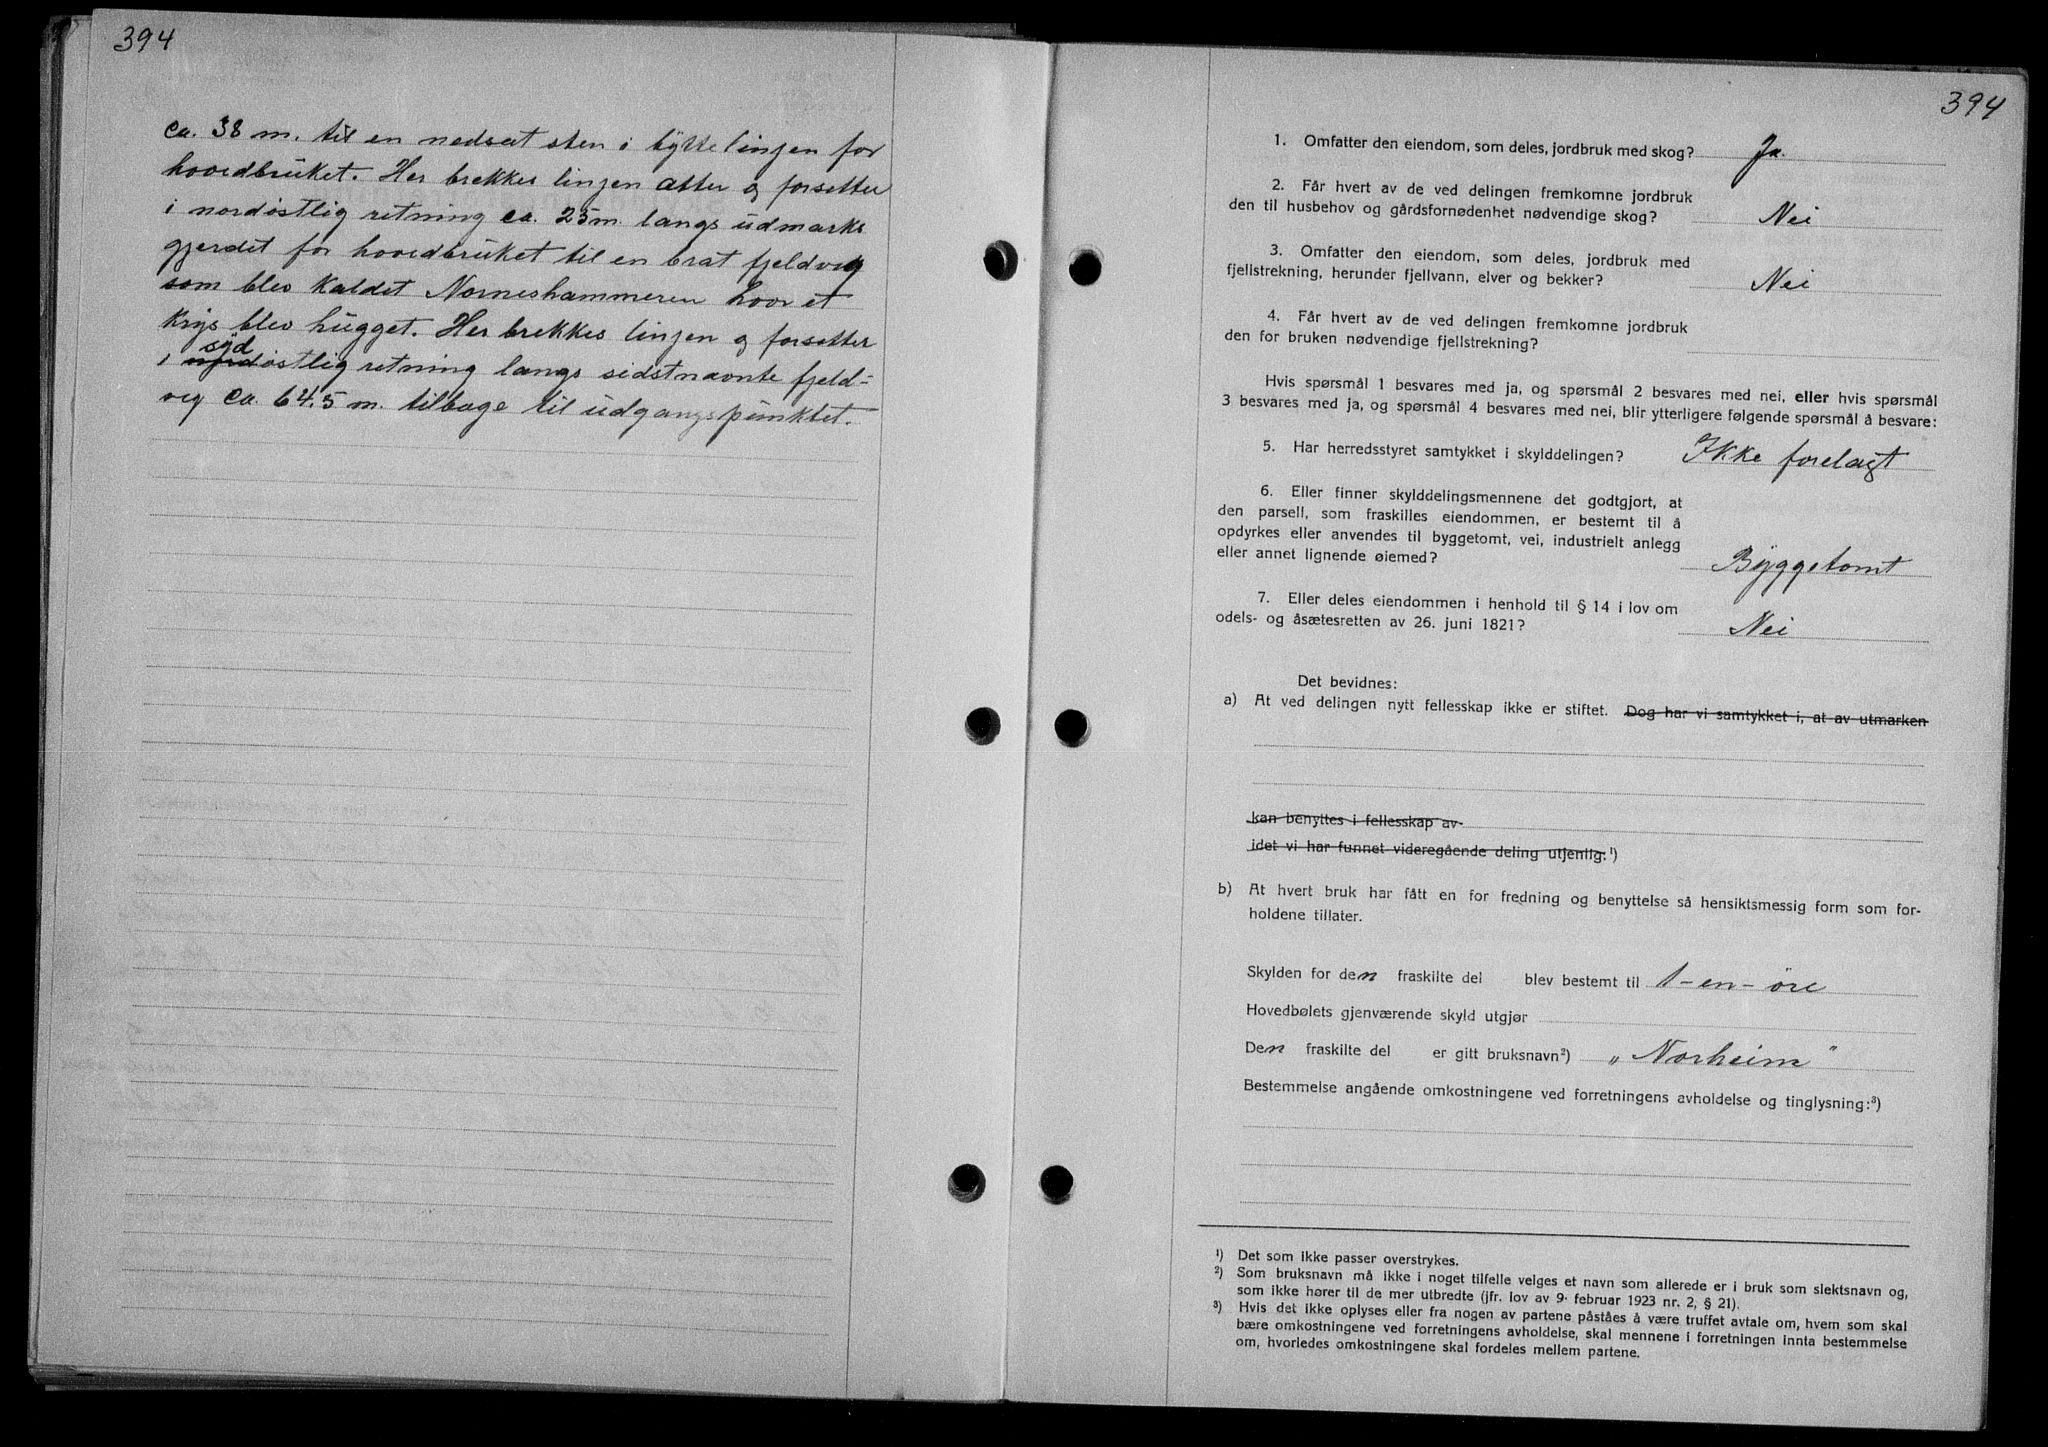 394
ca. 38 m. til en nedsat sten i bytte linjen for
hovedbruket. Her brekkes linjen atter og forsetter
i nordøstlig retning ca. 25 m. langs udmarks
gjerdet for hovedbruket til en brat fjeldveg
som blev kaldet Norneshammeren hvor et
kryss blev hugget. Her brekkes linjen og forsetter
syd
i nordøstlig retning langs sidstnævnte fjeld-
veg ca. 64.5 m. tilbage til udgangspunktet.
394
1. Omfatter den eiendom, som deles, jordbruk med skog? Ja.
2. Får hvert av de ved delingen fremkomne jordbruk
den til husbehov og gårdsfornødenhet nødvendige skog? Nei
3. Omfatter den eiendom, som deles, jordbruk med
fjellstrekning, herunder fjellvann, elver og bekker? Nei
4. Får hvert av de ved delingen fremkomne jordbruk
den for bruken nødvendige fjellstrekning?
Hvis spørsmål 1 besvares med ja, og spørsmål 2 besvares med nei, eller hvis spørsmål
3 besvares med ja, og spørsmål 4 besvares med nei, blir ytterligere følgende spørsmål å besvare:
5. Har herredsstyret samtykket i skylddelingen? Ikke forelagt
6. Eller finner skylddelingsmennene det godtgjort, at
den parsell, som fraskilles eiendommen, er bestemt til å
opdyrkes eller anvendes til byggetomt, vei, industrielt anlegg
eller annet lignende øiemed? Byggetomt
7. Eller deles eiendommen i henhold til § 14 i lov om
odels- og åsætesretten av 26. juni 1821? Nei
Det bevidnes:
a) At ved delingen nytt fellesskap ikke er stiftet. Dog har vi samtykket i, at av utmarken
kan benyttes i fellesskap av
idet vi har funnet videregående deling utjenlig.¹)
b) At hvert bruk har fått en for fredning og benyttelse så hensiktsmessig form som for-
holdene tillater.
Skylden for den fraskilte del blev bestemt til 1-en-øre
Hovedbølets gjenværende skyld utgjør
Den fraskilte del er gitt bruksnavn²) „Norheim"
Bestemmelse angående omkostningene ved forretningens avholdelse og tinglysning:³)
¹) Det som ikke passer overstrykes.
²) Som bruksnavn må ikke i noget tilfelle velges et navn som allerede er i bruk som slektsnavn og,
som ikke hører til de mer utbredte (jfr. lov av 9. februar 1923 nr. 2, § 21).
³) Hvis det ikke oplyses eller fra nogen av partene påståes å være truffet avtale om, hvem som skal
bære omkostningene ved forretningens avholdelse, skal mennene i forretningen innta bestemmelse
om, hvorledes omkostningene skal fordeles mellem partene.